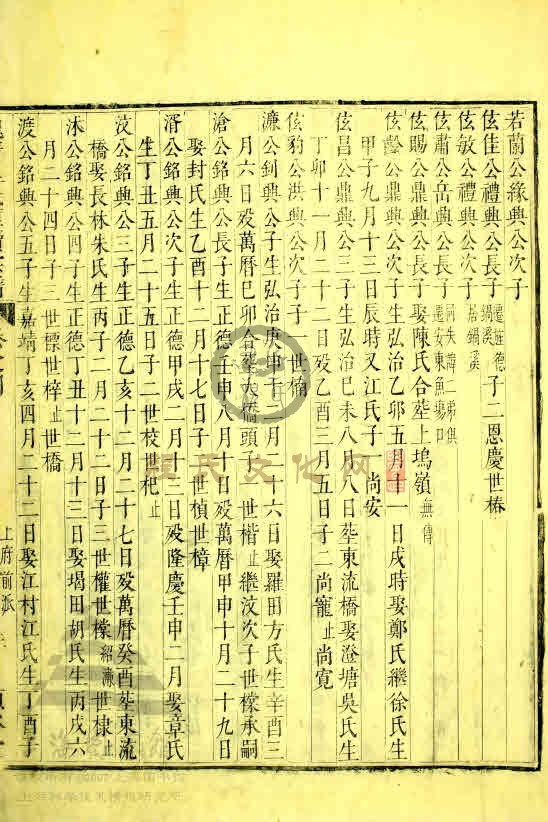 若蘭公緣典公次子
伭佳公禮典公長子遷旌德鍋溪子二恩慶世椿
伭敏公禮典公次子居鍋溪
伭肅公岳典公子同失諱二弟俱遷安東魚塲口
伭賜公鼎典公長子娶陳氏合塟上塢嶺無傳
伭齡公鼎典公次子生弘治乙卯五月十一日戌時娶鄭氏繼徐氏生
甲子九月十三日辰時又江氏子 尚安
伭昌公鼎典公三子生弘治己未八月八日塟東流橋娶澄塘吳氏生
丁卯十一月二十二日殁乙酉三月五日子二尚寵止尚寬
伭豹公洪典公次子子一世楠
濂公釗典公子生弘治庚申十二月二十六日娶羅田方氏生辛酉三
月六日殁萬曆己卯合塟大橋頭子 世楷止繼汶次子世檬承嗣
滄公銘典公長子生正德壬申八月十日殁萬曆甲申十月二十九日
娶封氏生乙酉十二月十七日子二世楨世樟
湑公銘典公次子生正德甲戌二月十二日殁隆慶壬申二月娶章氏
生丁丑五月二十五日子二世校世杷止
汶公銘典公三子生正德乙亥十二月二十七日殁萬曆癸酉塟東流
橋娶長林朱氏生丙子二月二十二日子三世權世檬紹濂世棣止
沭公銘典公四子生正德丁丑十二月十三日娶堨田胡氏生丙戌六
月二十四日子三世標世梓止世橋
渡公銘典公五子生嘉靖丁亥四月二十二日娶江村江氏生丁酉子
上府前派
程氏文化网